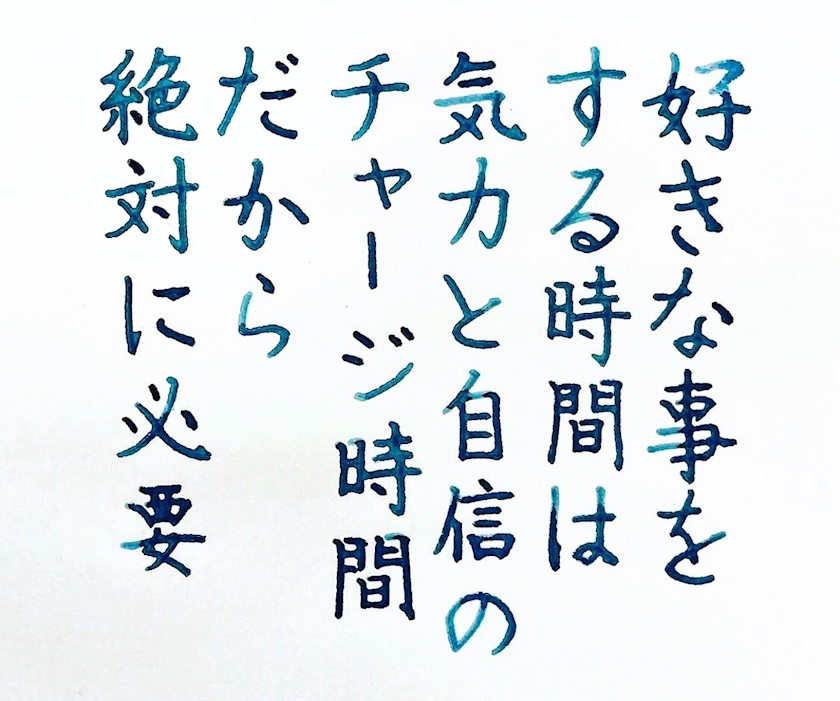 好きな事を
する時間は
気力と自信の
チャージ時間
だから
絶対に必要